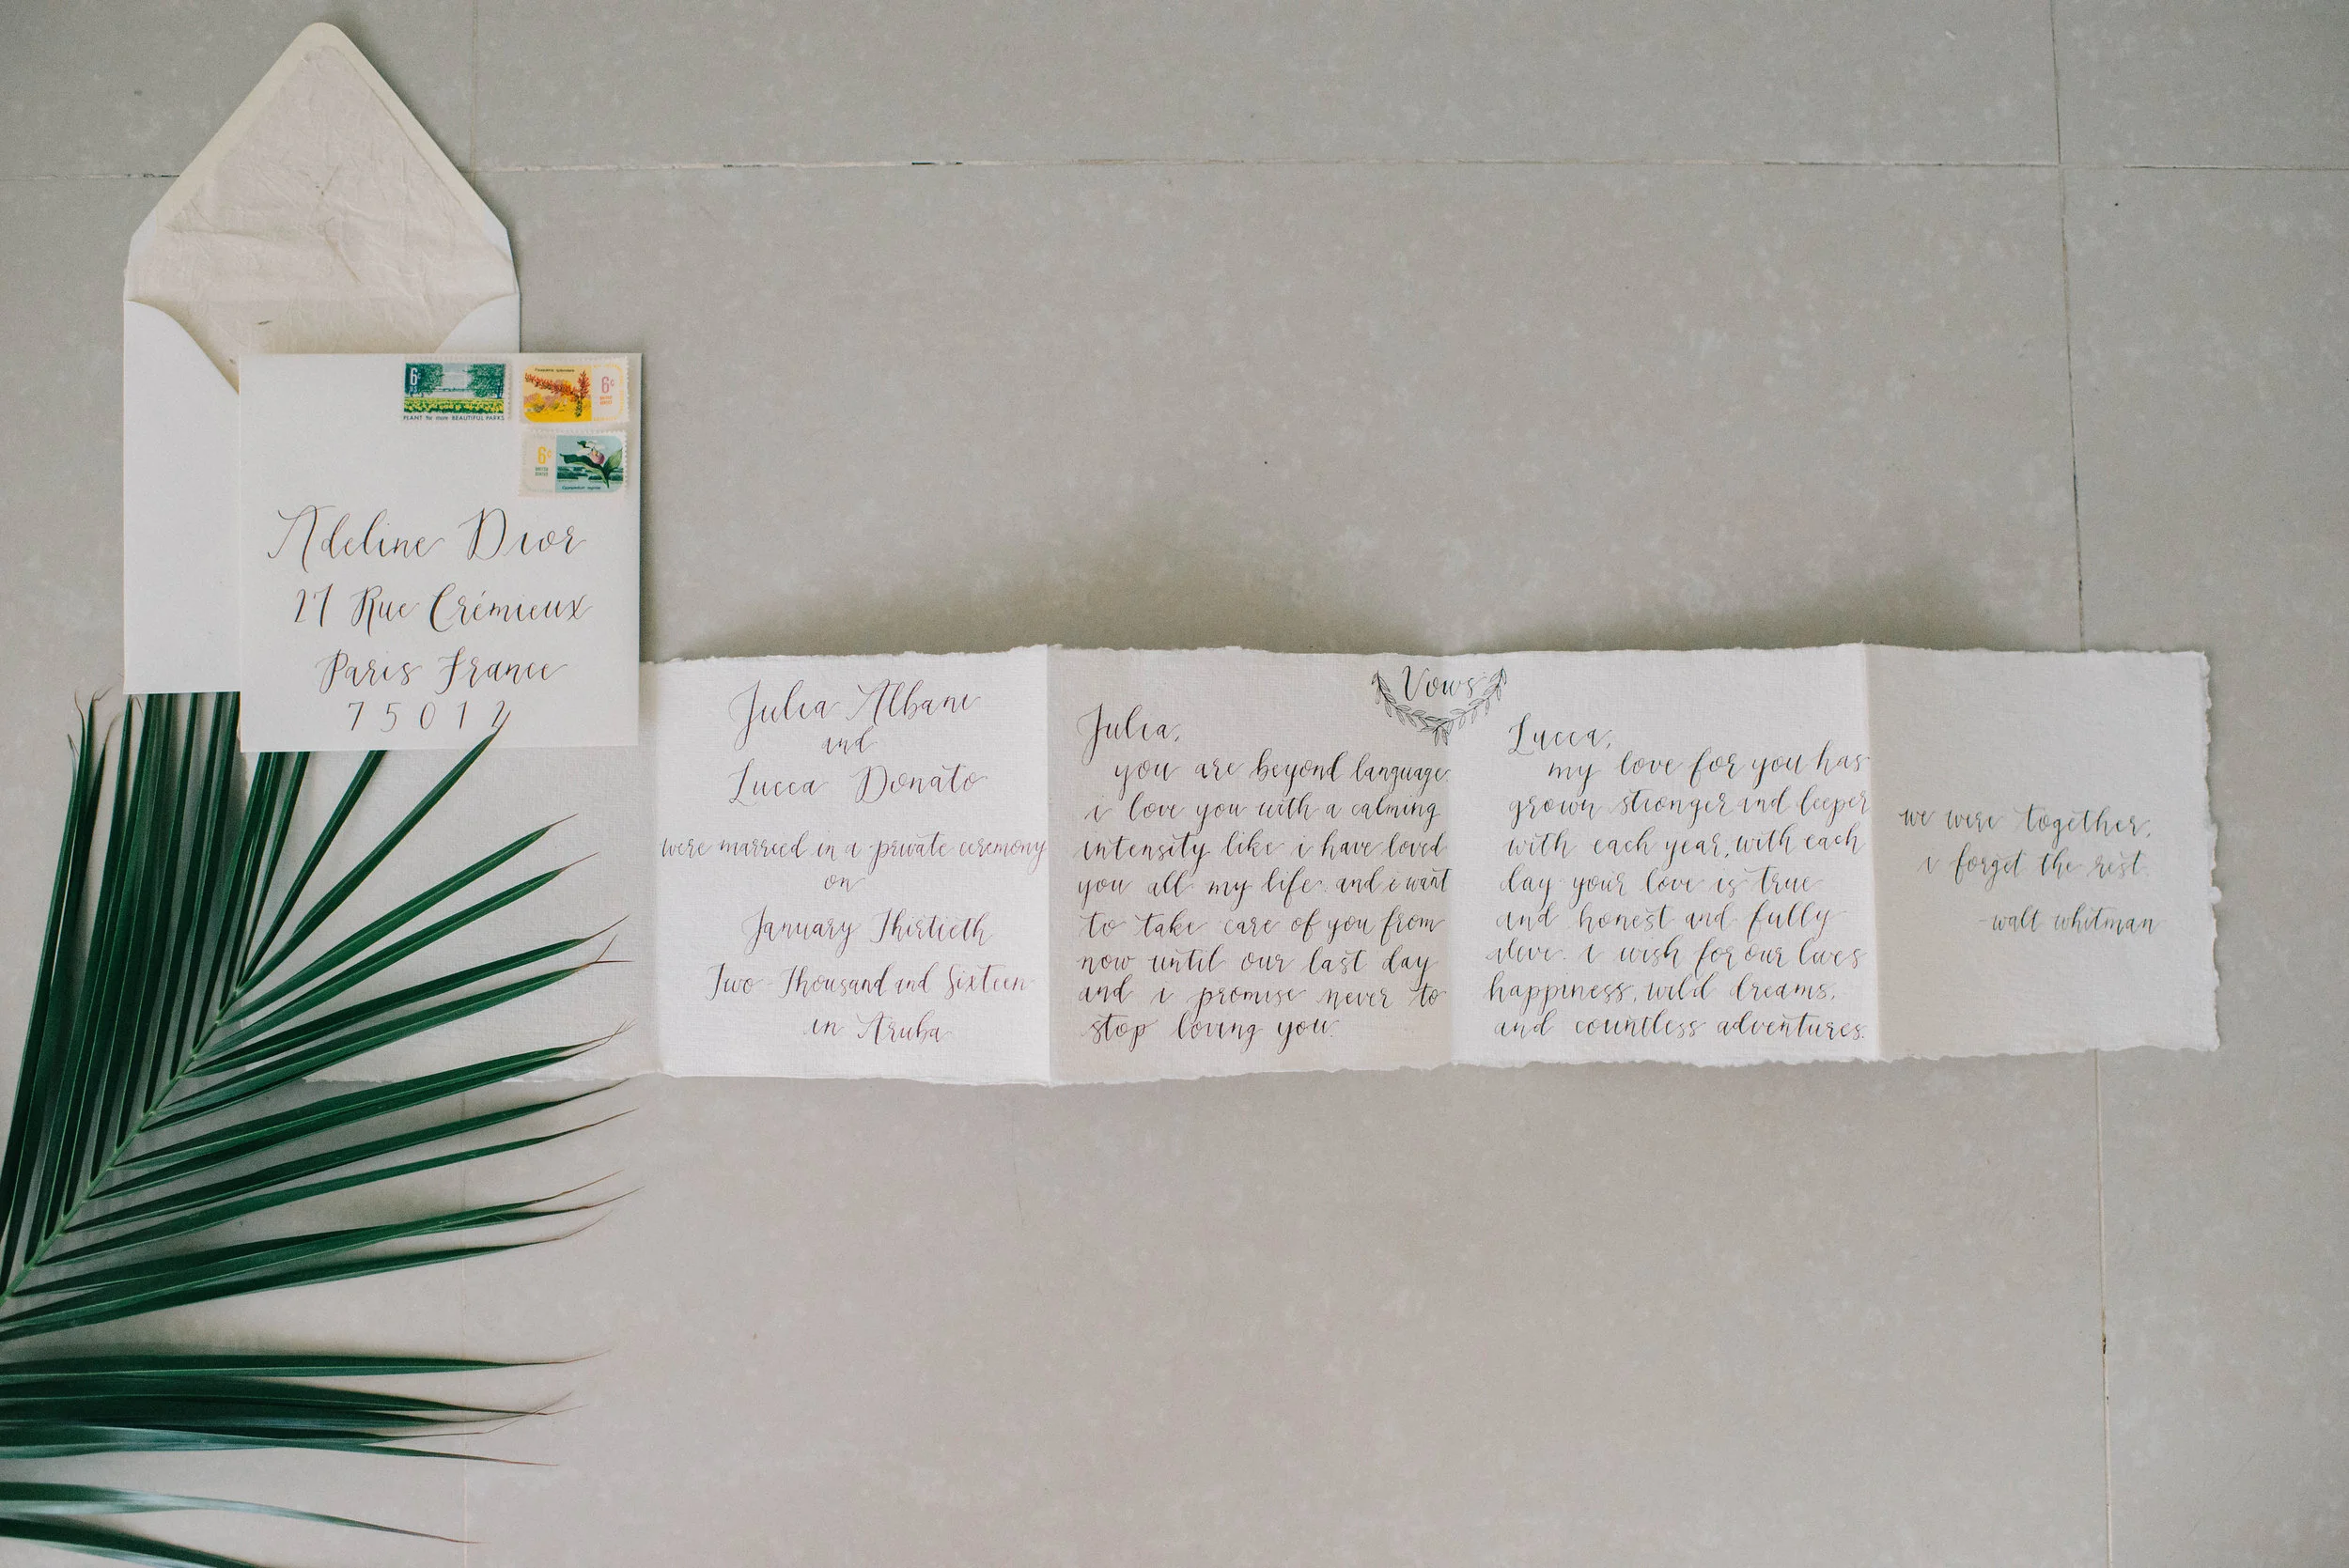 6c
U.S.
PLANT for more BEAUTIFUL PARKS
6c
UNITED STATES
6c
UNITED STATES
Adeline Dior
27 Rue Crémieux
Paris France
75012
Julia Albani
and
Lucca Donato
were married in a private ceremony
on
January Thirtieth
Two Thousand and Sixteen
in Aruba
Vows
Julia,
you are beyond language.
i love you with a calming
intensity like i have loved
you all my life. and i want
to take care of you from
now until our last day
and i promise never to
stop loving you.
Lucca,
my love for you has
grown stronger and deeper
with each year, with each
day your love is true
and honest and fully
alive. i wish for our lives
happiness, wild dreams,
and countless adventures.
we were together,
i forget the rest.
-walt whitman